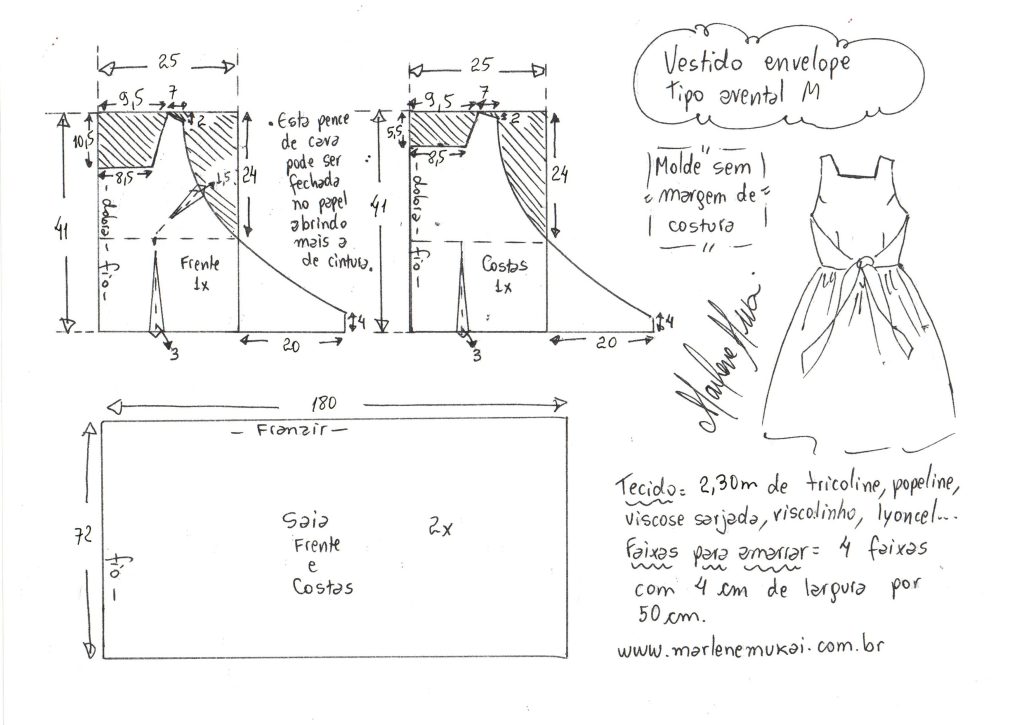 Vestido envelope
tipo avental M
Molde sem
margem de
costura
25
9,5
7
2
10,5
8,5
1,5
24
41
dobra - fio
Frente
1x
3
20
4
. Esta pence
de cava
pode ser
fechada
no papel
abrindo
mais a
de cintura.
25
9,5
7
2
5,5
8,5
24
41
dobra - fio
Costas
1x
3
20
4
Marlene Mukai
180
- Franzir -
72
fio -
Saia
Frente
e
Costas
2x
Tecido= 2,30m de tricoline, popeline,
viscose sarjada, viscolinho, lyoncel...
Faixas para amarrar= 4 faixas
com 4 cm de largura por
50 cm.
www.marlenemukai.com.br